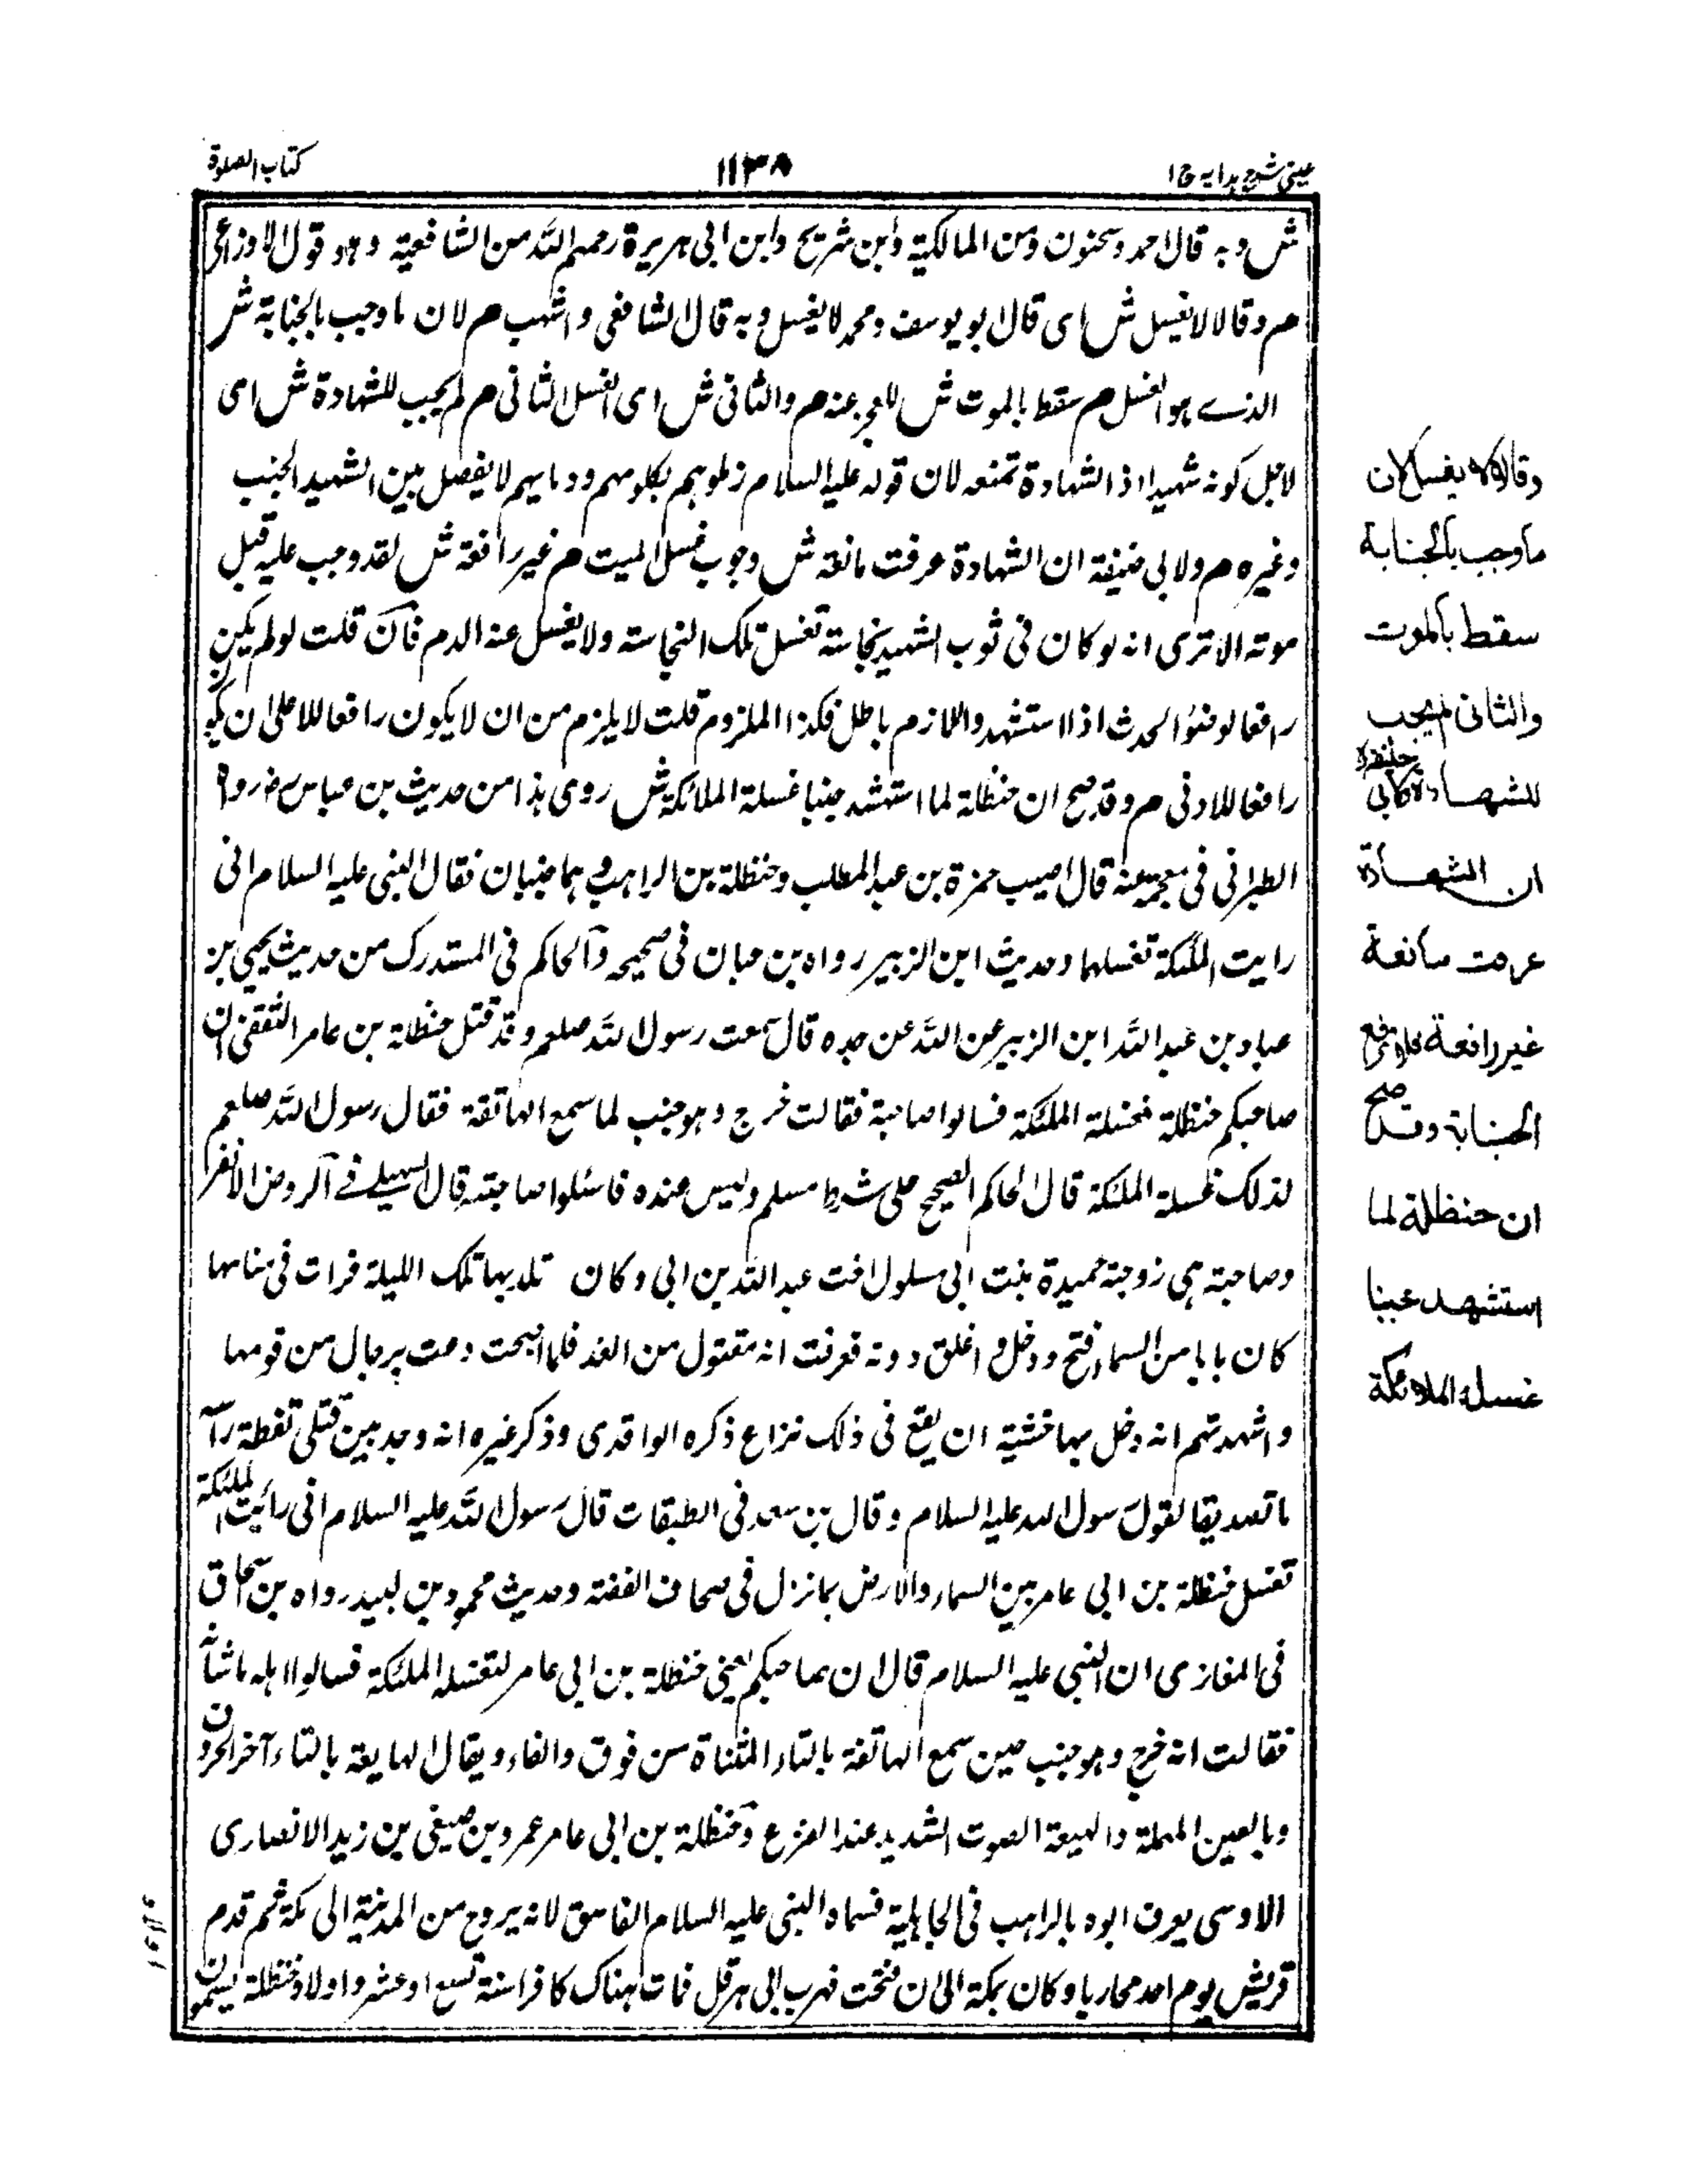 عینی شرح ہدایہ ج ۱
۱۱۳۸
کتاب الصلوة
ش وبه قال احمد وسحنون ومن المالكية وابن شريح وابن ابی هريرة رحمهم الله من الشافعية وهو قول الاوزاعی
م وقالا لا يغسل ش ای قال ابو يوسف ومحمد لا يغسل وبه قال الشافعی واشهب م لان ما وجب بالجنابة ش
الذے هو الغسل م سقط بالموت ش للعجز عنه م والثانی ش ای الغسل الثانی م لم يجب للشهادة ش ای
لاجل كونه شهيدا اذ الشهادة تمنعه لان قوله عليه السلام زملوهم بكلومهم ودمایهم لا يفصل بين الشهيد الجنب
وغيره م ولابی حنيفة ان الشهادة عرفت مانعة ش وجوب غسل الميت م غير رافعة ش لقد وجب عليه قبل
موته الا تری انه لو كان فی ثوب الشهيد نجاسة تغسل تلك النجاسة ولا يغسل عنه الدم فان قلت لو لم يكن
رافعا لوضؤ المحدث اذا استشهد واللازم باطل فكذا الملزوم قلت لا يلزم من ان لا يكون رافعا للاعلی ان يكون
رافعا للادنی م وقد صح ان حنظلة لما استشهد جنبا غسلة الملائكة ش روی هذا من حديث بن عباس رض رواه
الطبرانی فی معجمه عنه قال اصيب حمزة بن عبد المطلب وحنظلة بن الراهب وهما جنبان فقال النبی عليه السلام انی
رايت الملئكة تغسلهما وحديث ابن الزبير رواه بن حبان فی صحيحه والحاكم فی المستدرك من حديث يحيی بن
عباد بن عبد الله ابن الزبير عن الله عن جده قال سمعت رسول الله صلعم وقد قتل حنظلة بن عامر الثقفی ان
صاحبكم حنظلة فغسلة الملئكة فسالوا صاحبة فقالت خرج وهو جنب لما سمع الهاتفة فقال رسول الله صلعم
لذلك غسلة الملئكة قال الحاكم الصحيح علی شرط مسلم وليس عنده فاسئلوا صاحبته قال السهيلے فے الروض الانف
وصاحبته هی زوجته جميدة بنت ابی سلول اخت عبد الله بن ابی وكان تلديها تلك الليلة فرات فی منامها
كان بابا من السماء فتح ودخل واغلق دونه فعرفت انه مقتول من الغد فلما اصبحت دعت برجال من قومها
واشهدتهم انه دخل بها خشية ان يقع فی ذلك نزاع ذكره الواقدی وذكر غيره انه وجد بين قتلی تقطة رآه
ما تصديقا لقول رسول الله عليه السلام وقال بن سعد فی الطبقات قال رسول الله عليه السلام انی رأيت الملئكة
تغسل حنظلة بن ابی عامر بين السماء والارض بما نزل فی صحاف الفضة وحديث محمود بن لبيد رواه بن سحاق
فی المغازی ان النبی عليه السلام قال ان صاحبكم يعنی حنظلة بن ابی عامر لتغسله الملئكة فسالوا اهله ما شانه
فقالت انه خرج وهو جنب حين سمع الهاتفة بالتاء المثناة من فوق والفاء ويقال الهايعة بالتاء آخر الحروف
وبالعين المهملة والهيعة الصوت الشديد عند الفزع وحنظلة بن ابی عامر عمرو بن صيفی بن زيد الانصاری
الاوسی يعرف ابوه بالراهب فی الجاهلية فسماه النبی عليه السلام الفاسق لانه يروح من المدينة الی مكة ثم قدم
قريش يوم احد محاربا وكان بمكة الی ان فتحت فهرب الی هرقل فمات هناك كافرا سنة تسع او عشر واولاد حنظلة يسمون
وقالا لا يغسل لان
ما وجب بالجنابة
سقط بالموت
والثانی لم يجب
للشهادة ولابی حنيفة
ان الشهادة
عرفت مانعة
غير رافعة فلا ترفع
الجنابة وقد صح
ان حنظلة لما
استشهد جنبا
غسله الملائكة